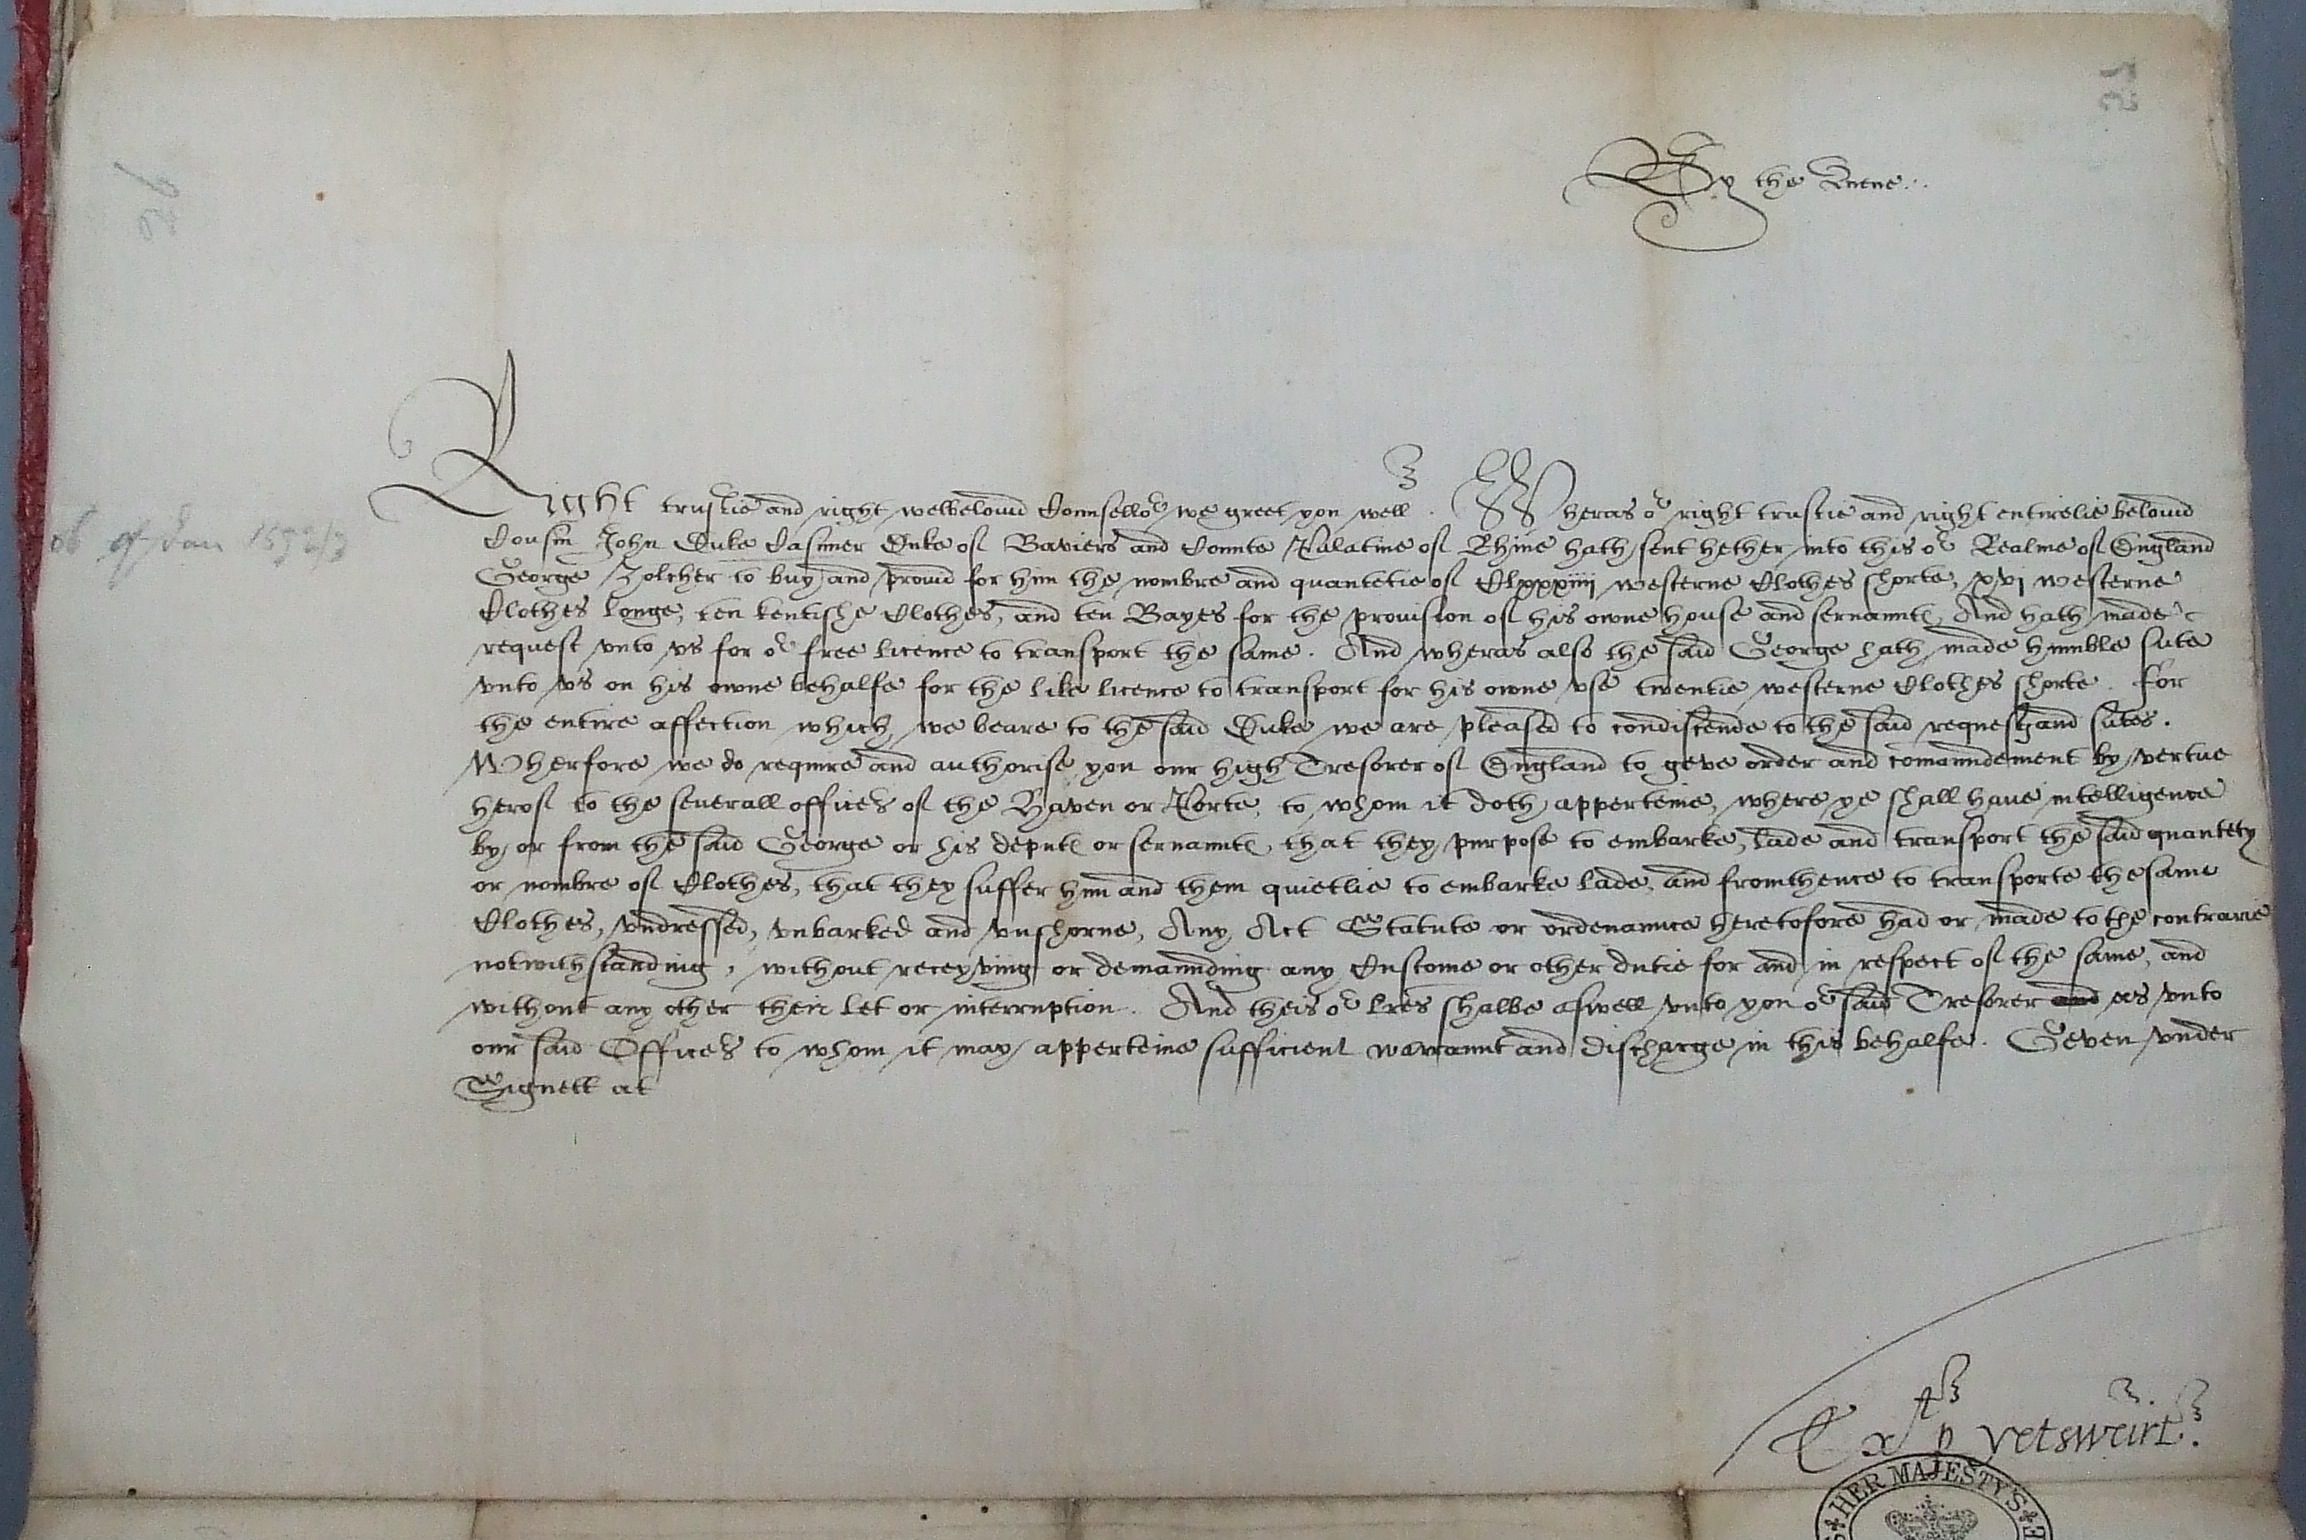 By the Quene.
Right trustie and right welbeloued Counsello^r we greet you well. Wheras o^r right trustie and right entirelie beloued
Cousin John Duke Casimer Duke of Baviers and Counte Palatine of Rhine hath sent hether into this o^r Realme of England
George Zolcher to buy and proud for him the nombre and quantetie of Clxxxiiij westerne Clothes shorte, xvj westerne
Clothes longe, ten kentishe Clothes, and ten Bayes for the prouision of his owne house and seruauntes, And hath made
request vnto vs for o^r free licence to transport the same. And wheras also the said George hath made humble sute
vnto vs on his owne behalfe for the like licence to transport for his owne vse twentie westerne Clothes shorte. For
the entire affection which we beare to the said Duke we are pleased to condiscende to the said requestz and sutes.
Wherfore we do require and authorise you our high Tresorer of England to geve order and comaundement by vertue
herof to the seuerall offices of the Haven or Porte, to whom it doth apperteine, where ye shall haue intelligence
by or from the said George or his deputes or seruauntes, that they purpose to embarke, lade and transport the said quantety
or nombre of Clothes, that they suffer him and them quietlie to embarke lade and fromthence to transporte thesame
Clothes, vndressed, vnbarked and vnshorne, Any Act Statute or ordenaunce heretofore had or made to the contrarie
notwithstanding, without receyving or demaunding any Custome or other dutie for and in respect of the same, and
without any other their let or interruption. And theis o^r lres shalbe aswell vnto you o^r said Tresorer and as vnto
our said Offices to whom it may apperteine sufficient warraunt and discharge in this behalfe. Geven vnder
Signett at
06 of Jan 1592/3
Ex^t p yetsweirt.
HER MAJESTY'S